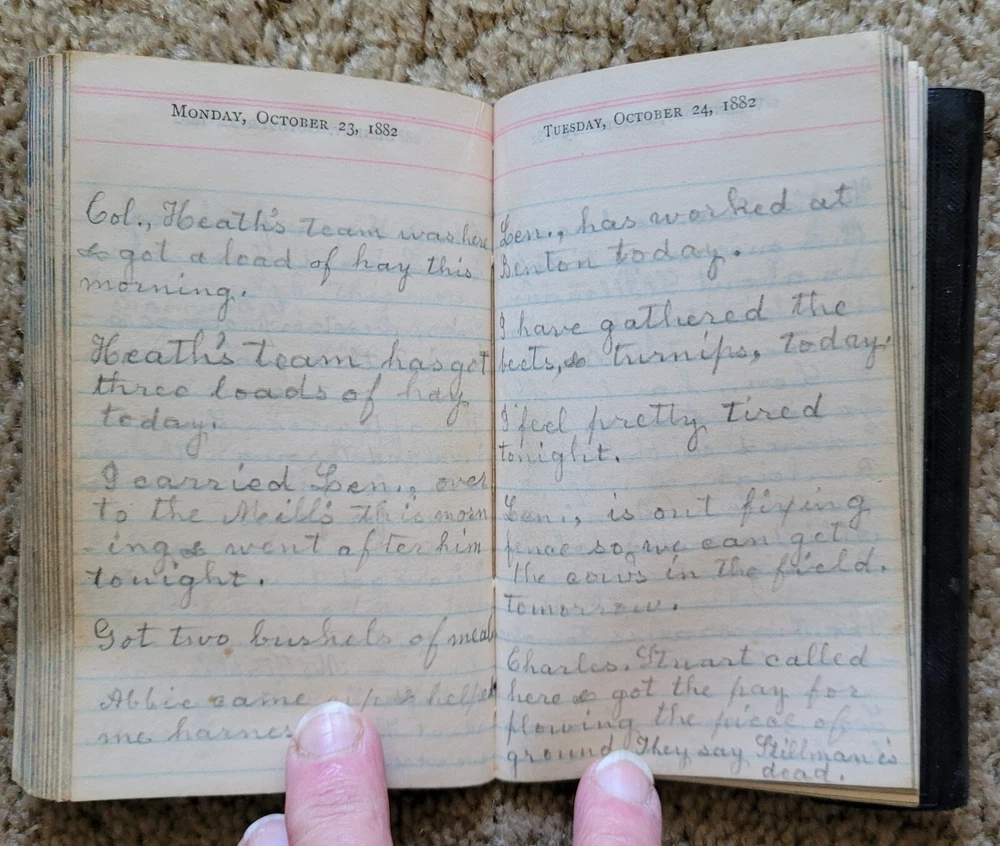 MONDAY, OCTOBER 23, 1882
Col., Heath's team was here
& got a load of hay this
morning.
Heath's team has got
three loads of hay
today.
I carried Len., over
to the Mills this morn
-ing & went after him
tonight.
Got two bushels of meal
Abbie came & helped
me harness
TUESDAY, OCTOBER 24, 1882
Len., has worked at
Benton today.
I have gathered the
beets, & turnips, today.
I feel pretty tired
tonight.
Len., is out fixing
fence so, we can get
the cows in the field.
tomorrow.
Charles, Stuart called
here & got the pay for
plowing the piece of
ground. They say Stillman is
dead.